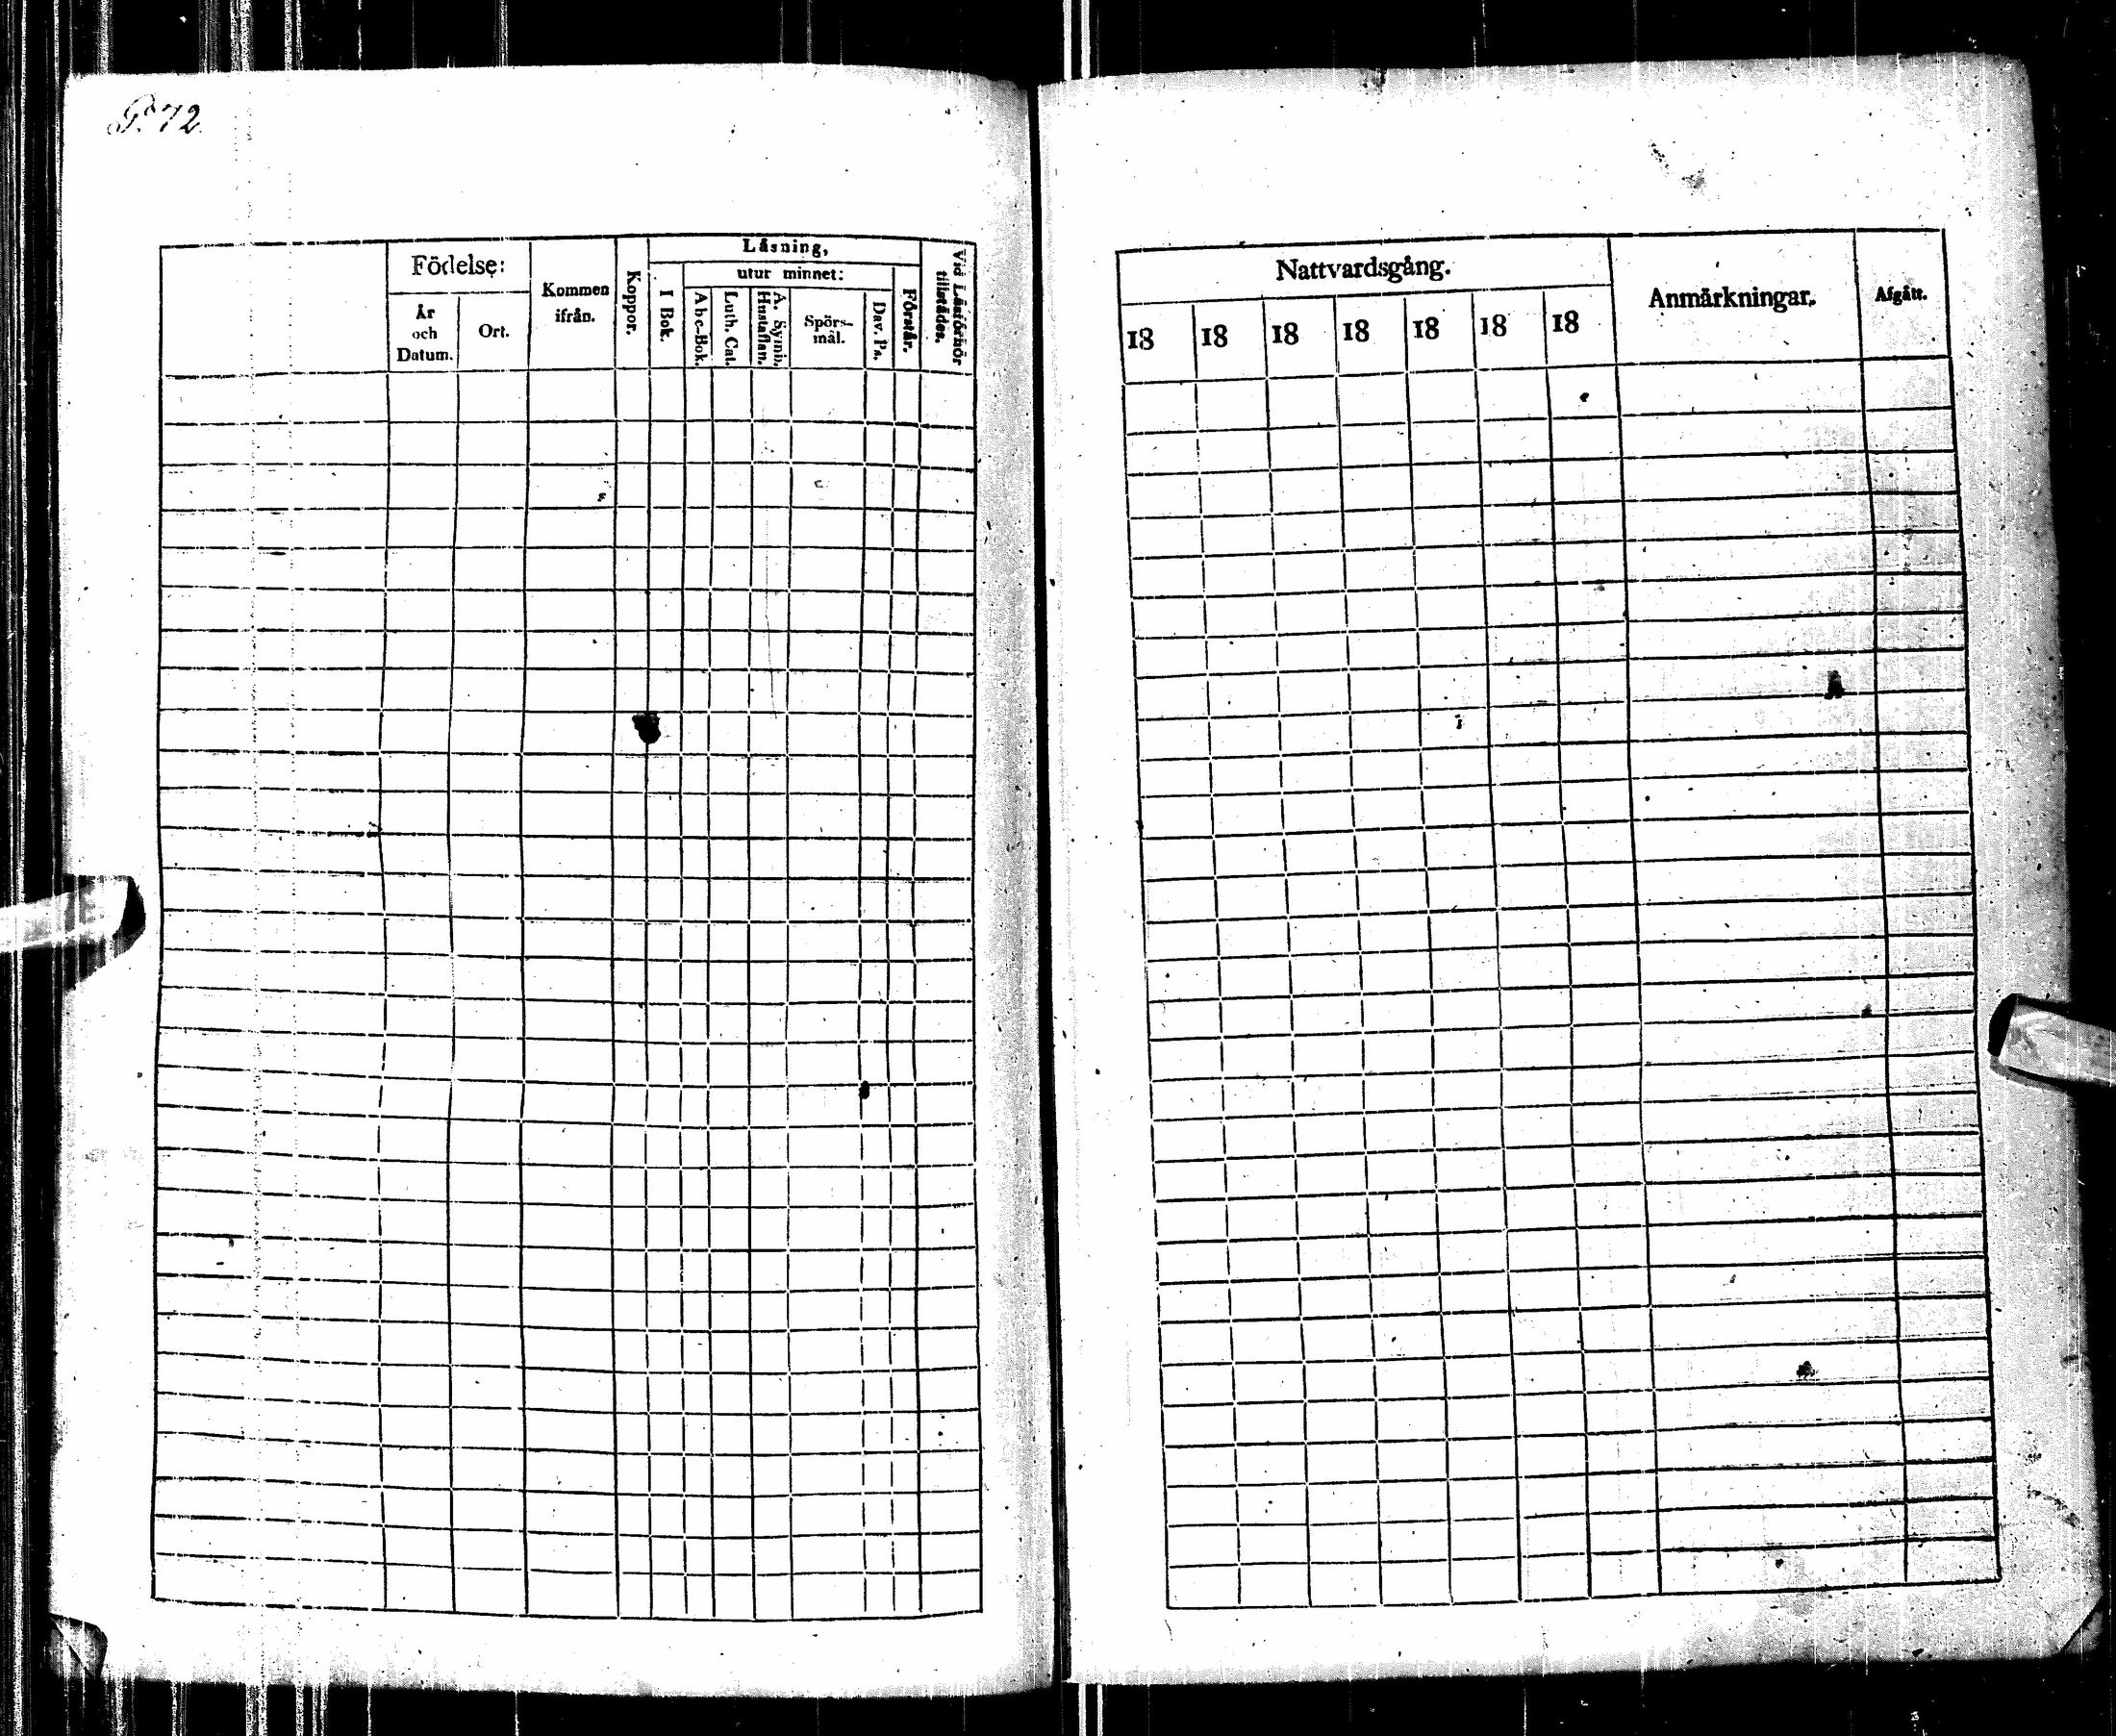 P. 72
Födelse:
År
och
Datum.
Ort.
Kommen
ifrån.
Koppor.
Läsning,
I Bok.
utur minnet:
Abc-Bok.
Luth. Cat.
A. Symb.
Hustaflan.
Spörs-
mål.
Dav. Ps.
Förstår.
Vid Läsförhör
tillstädes.
Nattvardsgång.
18 18 18 18 18 18 18
Anmärkningar.
Afgått.